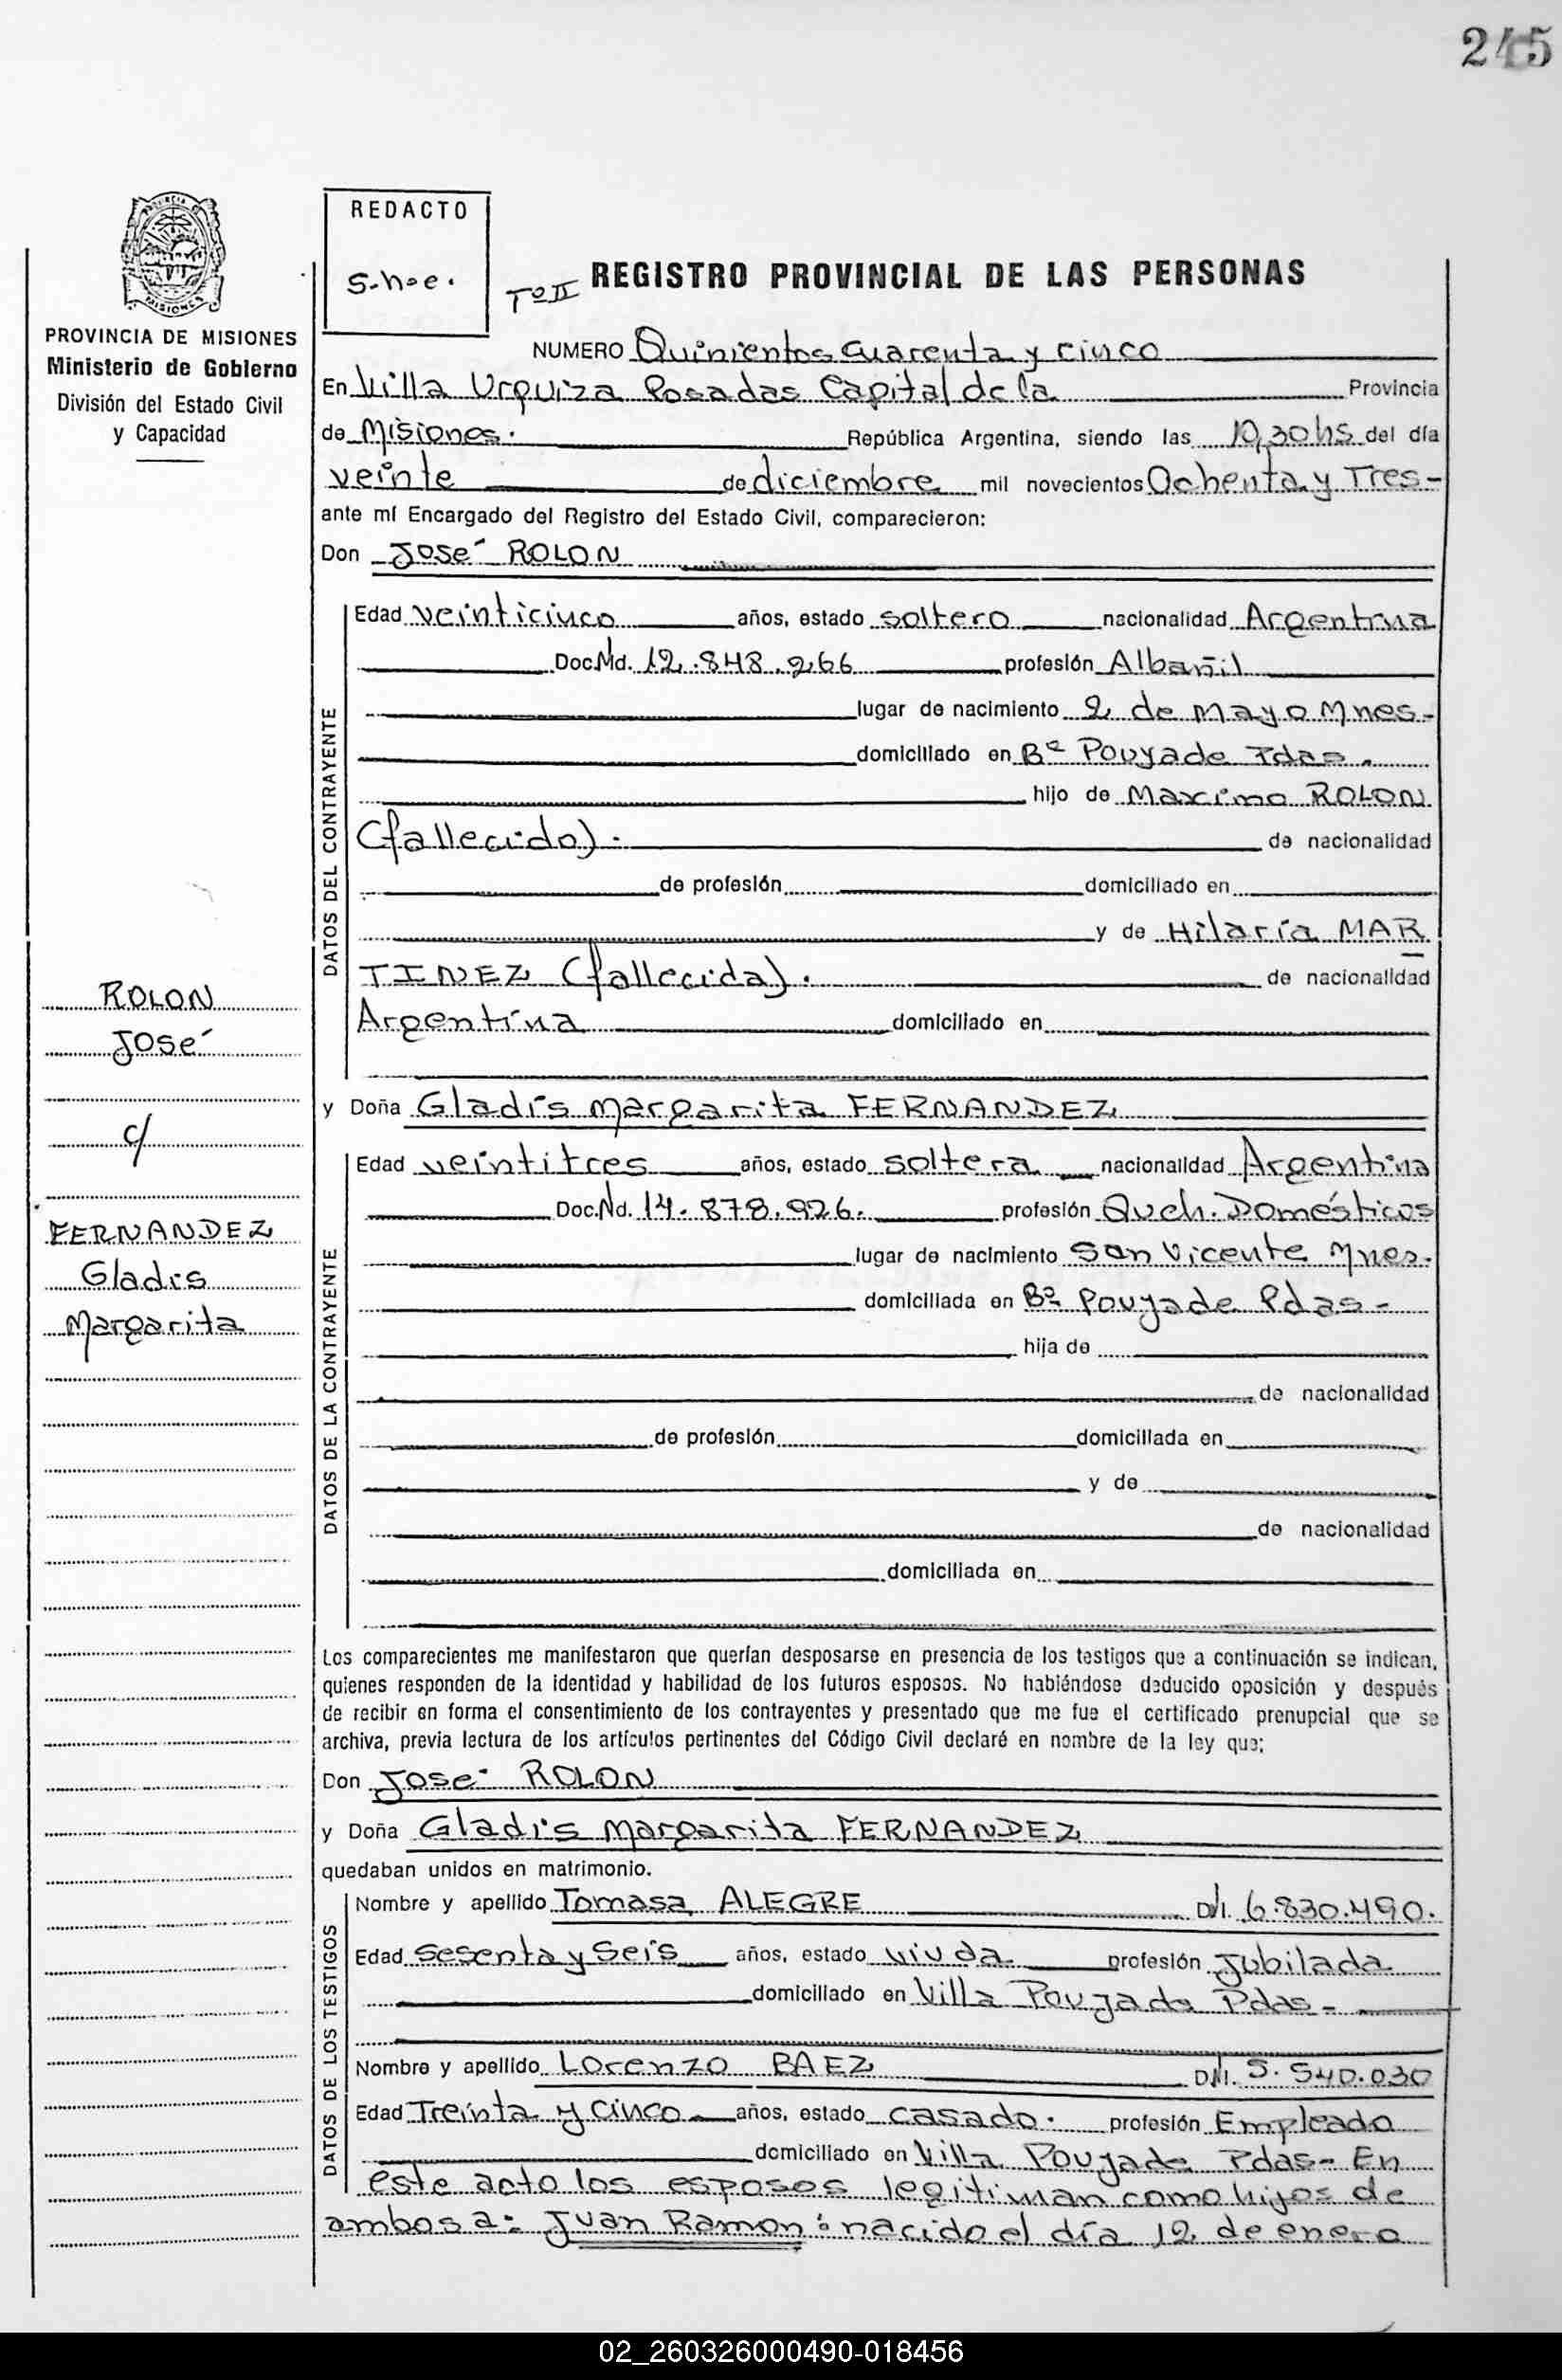 245
REDACTO
S.n.e.
Tº II REGISTRO PROVINCIAL DE LAS PERSONAS
PROVINCIA DE MISIONES
Ministerio de Gobierno
División del Estado Civil
y Capacidad
NUMERO Quinientos cuarenta y cinco
En Villa Urquiza Posadas Capital de la Provincia
de Misiones. República Argentina, siendo las 10,30 hs del día
veinte de diciembre mil novecientos Ochenta y Tres-
ante mí Encargado del Registro del Estado Civil, comparecieron:
Don José ROLON
DATOS DEL CONTRAYENTE
Edad veinticinco años, estado soltero nacionalidad Argentina
Doc.Nd. 12.848.266 profesión Albañil
lugar de nacimiento 2 de Mayo Mnes-
domiciliado en Bº Pouyade Pdas.
hijo de Maximo ROLON
(fallecido). de nacionalidad
de profesión domiciliado en
y de Hilaria MAR
TINEZ (fallecida). de nacionalidad
Argentina domiciliado en
ROLON
José
c/
FERNANDEZ
Gladis
Margarita
y Doña Gladis Margarita FERNANDEZ
DATOS DE LA CONTRAYENTE
Edad veintitres años, estado soltera nacionalidad Argentina
Doc.Nd. 14.878.926. profesión Queh. Domésticos
lugar de nacimiento San Vicente Mnes.
domiciliada en Bº Pouyade Pdas-
hija de
de nacionalidad
de profesión domiciliada en
y de
de nacionalidad
domiciliada en
Los comparecientes me manifestaron que querían desposarse en presencia de los testigos que a continuación se indican,
quienes responden de la identidad y habilidad de los futuros esposos. No habiéndose deducido oposición y después
de recibir en forma el consentimiento de los contrayentes y presentado que me fue el certificado prenupcial que se
archiva, previa lectura de los artículos pertinentes del Código Civil declaré en nombre de la ley que:
Don José ROLON
y Doña Gladis Margarita FERNANDEZ
quedaban unidos en matrimonio.
DATOS DE LOS TESTIGOS
Nombre y apellido Tomasa ALEGRE D/I. 6.830.490.
Edad Sesenta y Seis años, estado viuda profesión Jubilada
domiciliado en Villa Pouyade Pdas-
Nombre y apellido Lorenzo BAEZ DNI. 5.540.030
Edad Treinta y Cinco años, estado casado. profesión Empleado
domiciliado en Villa Pouyade Pdas- En
este acto los esposos legitiman como hijos de
ambos a: Juan Ramon: nacido el día 12 de enero
02_260326000490-018456